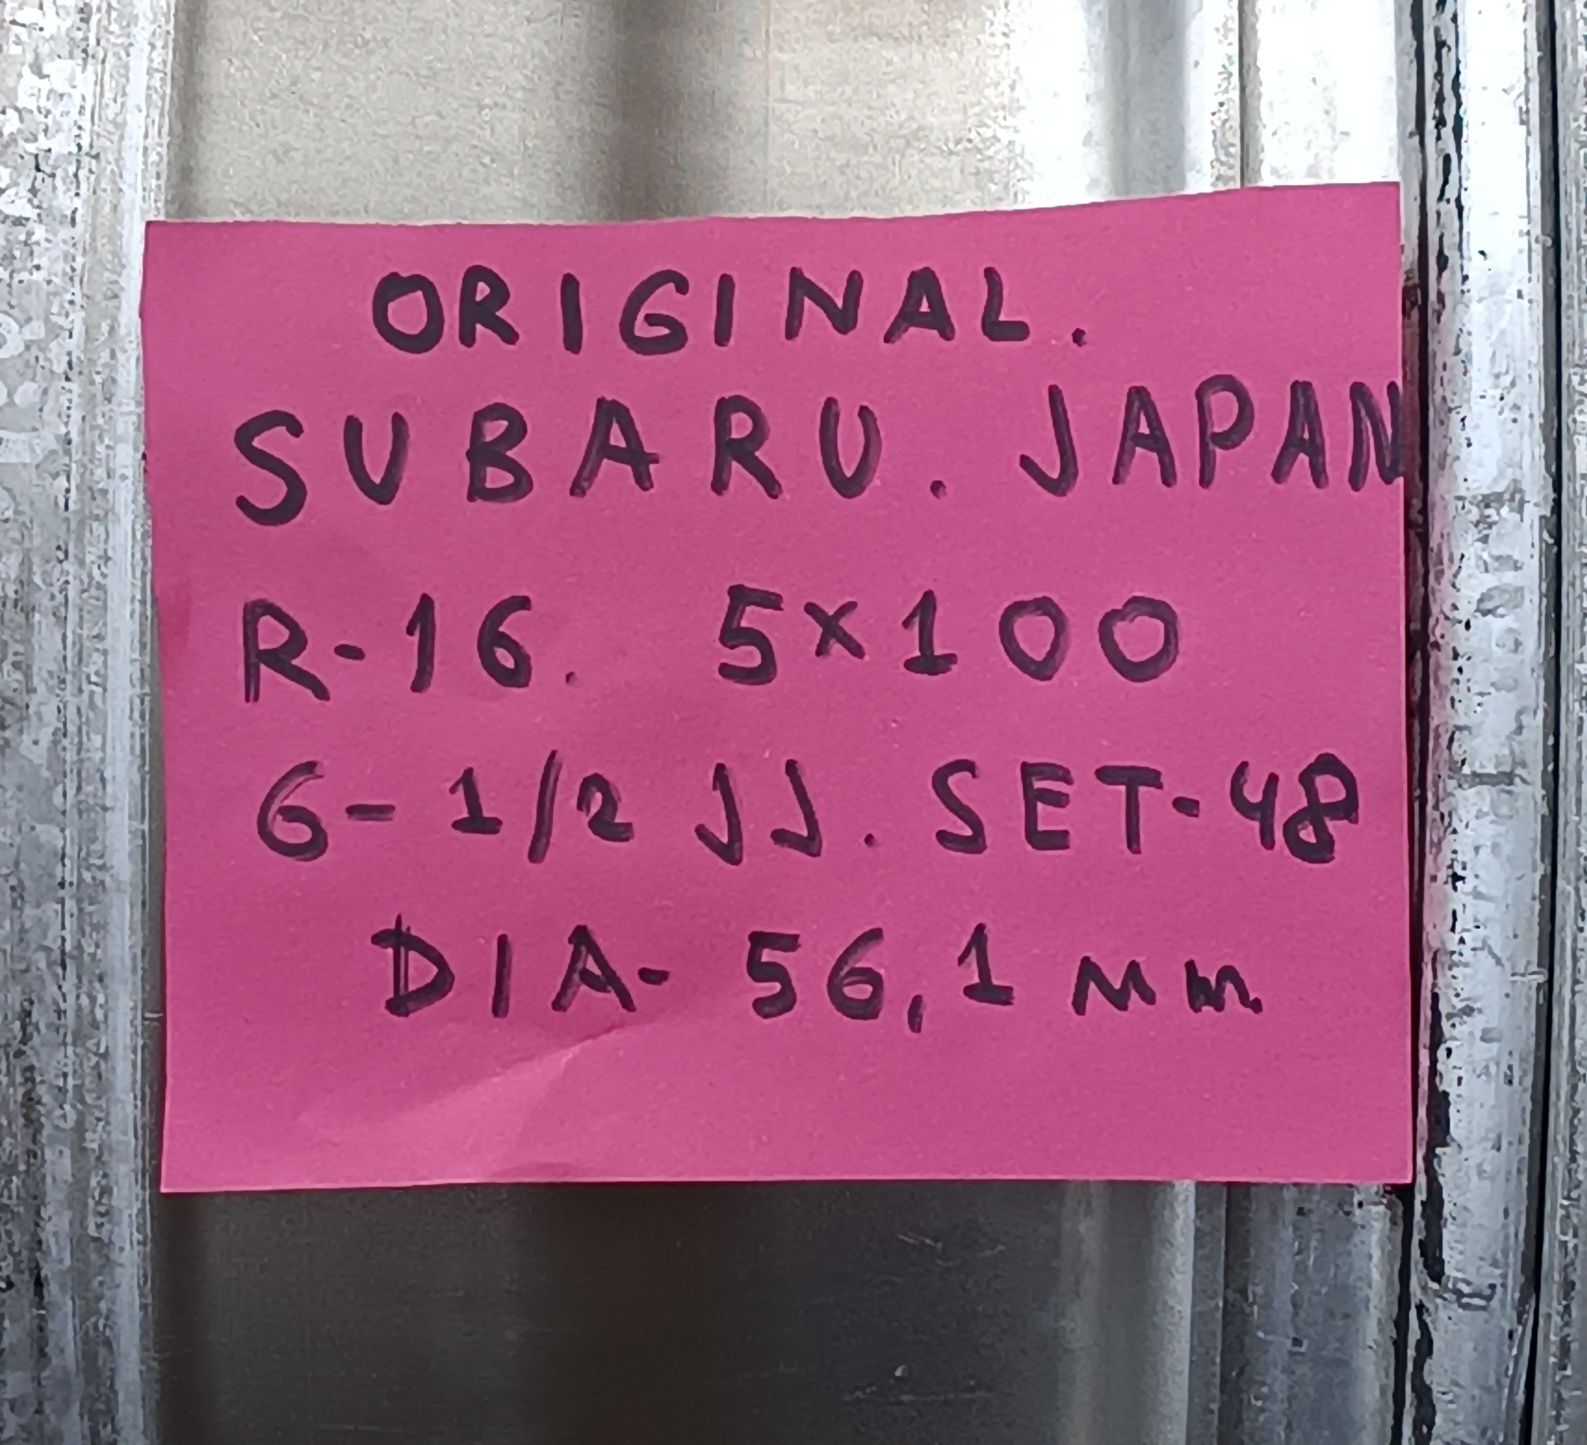 ORIGINAL.
SUBARU. JAPAN
R-16. 5×100
6-1/2 JJ. SET-48
DIA- 56,1 мм